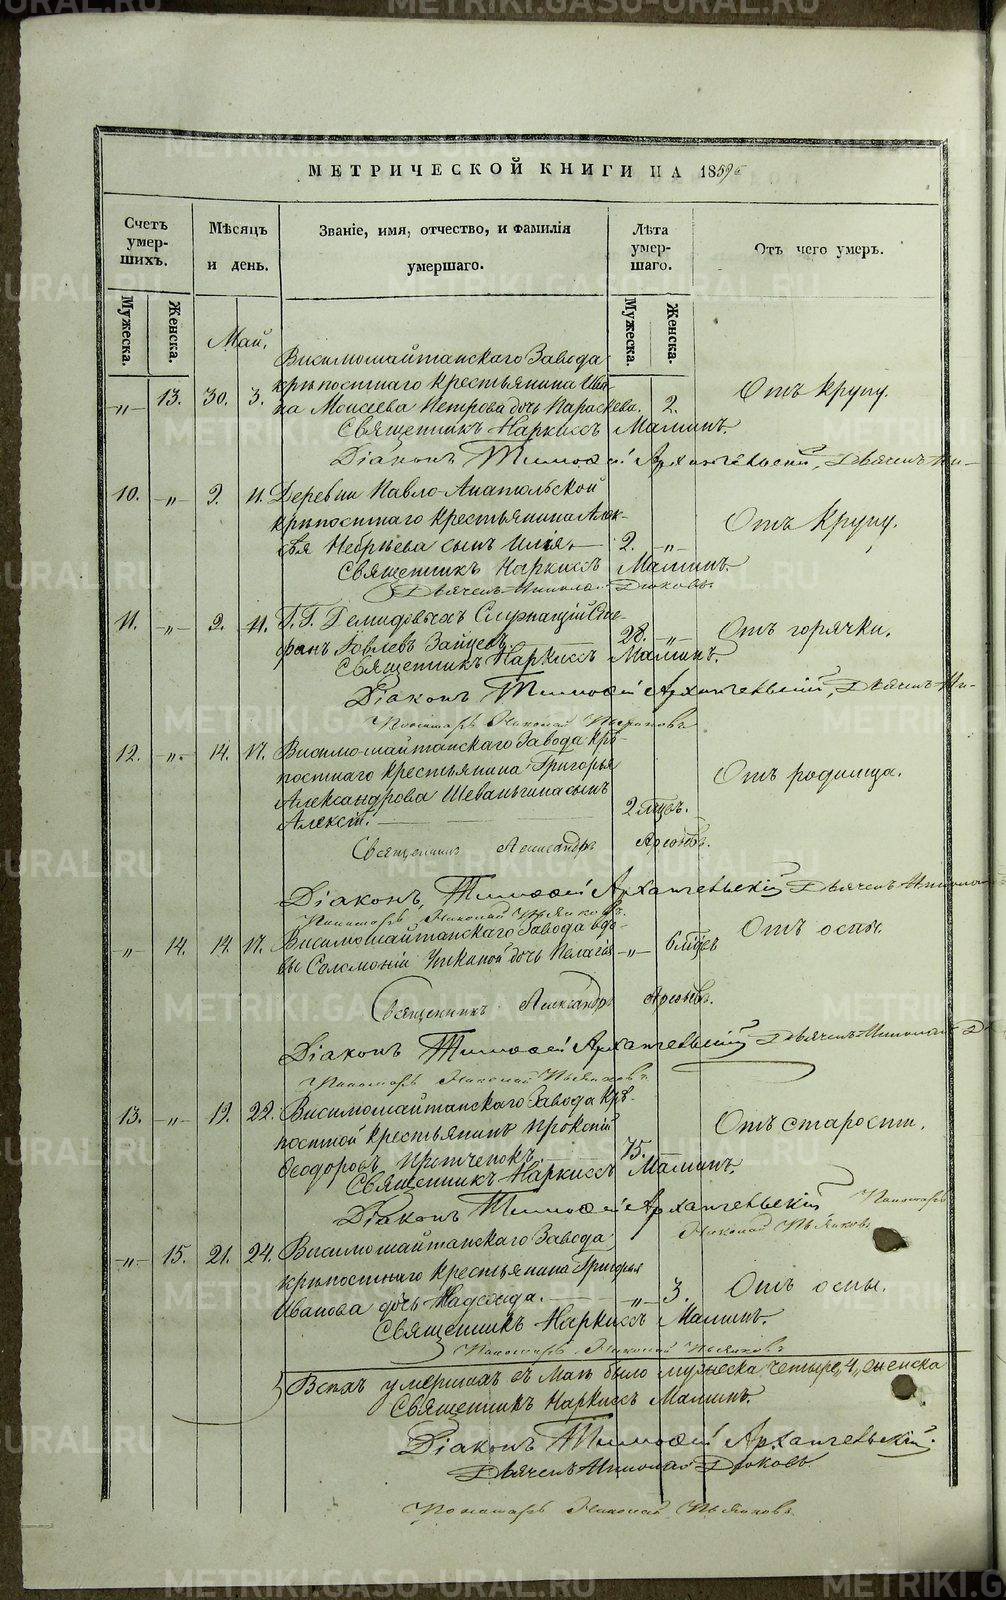 МЕТРИЧЕСКОЙ КНИГИ НА 1859
Счетъ умер-шихъ. Мѣсяцъ и день. Званіе, имя, отчество, и фамилія умершаго. Лѣта умер-шаго. Отъ чего умеръ.
Мужеска. Женска. Мужеска. Женска.
Май.
Висимошайтанскаго Завода
крѣпостнаго крестьянина Ива-
„ 13. 30. 3. на Моисеева Петрова дочь Параскева. 2. Отъ крупу.
Священникъ Наркиссъ Малинъ.
Діаконъ Тимоѳей Архангельскій, Дьячекъ Ни-
10. „ 9. 11. Деревни Павло-Анатольской
крѣпостнаго крестьянина Алек-
сѣя сынъ Илія. 2. „ Отъ крупу.
Священникъ Наркиссъ Малинъ.
Дьячекъ Николай Дюковъ
11. „ 9. 11. Г. Г. Демидовыхъ Служащій Сте-
фанъ Зайцевъ. 28. „ Отъ горячки.
Священникъ Наркиссъ Малинъ.
Діаконъ Тимоѳей Архангельскій, Дьячекъ Ни-
Пономарь Николай Пьянковъ
12. „ 14. 17. Висимошайтанскаго Завода крѣ-
постнаго крестьянина Григорья
Александрова сынъ
Алексій. 2 мцъ. Отъ родимца.
Священникъ Александръ
Діаконъ, Тимоѳей Архангельскій Дьячекъ Николай
Пономарь Николай Пьянковъ.
„ 14. 14. 17. Висимошайтанскаго Завода вдо-
вы Соломоніи дочь Пелагія „ 6 мцев Отъ оспы.
Священникъ Александръ
Діаконъ Тимоѳей Архангельскій Дьячекъ Николай Д
Пономарь Николай Пьянковъ
13. „ 19. 22. Висимошайтанскаго Завода крѣ-
постной крестьянинъ Прокопій
Ѳеодоровъ 75. Отъ старости.
Священникъ Наркиссъ Малинъ.
Діаконъ Тимоѳей Архангельскій Пономарь
Николай Пьянковъ
„ 15. 21. 24. Висимошайтанскаго Завода
крѣпостнаго крестьянина Григорья
Иванова дочь Надежда. „ 3. Отъ оспы.
Священникъ Наркиссъ Малинъ.
Пономарь Николай Пьянковъ
Всѣхъ умершихъ въ Маѣ было мужеска четыре, 4, женска
Священникъ Наркиссъ Малинъ.
Діаконъ Тимоѳей Архангельскій.
Дьячекъ Николай Дюковъ.
Пономарь Николай Пьянковъ.
METRIKI.GASO-URAL.RU